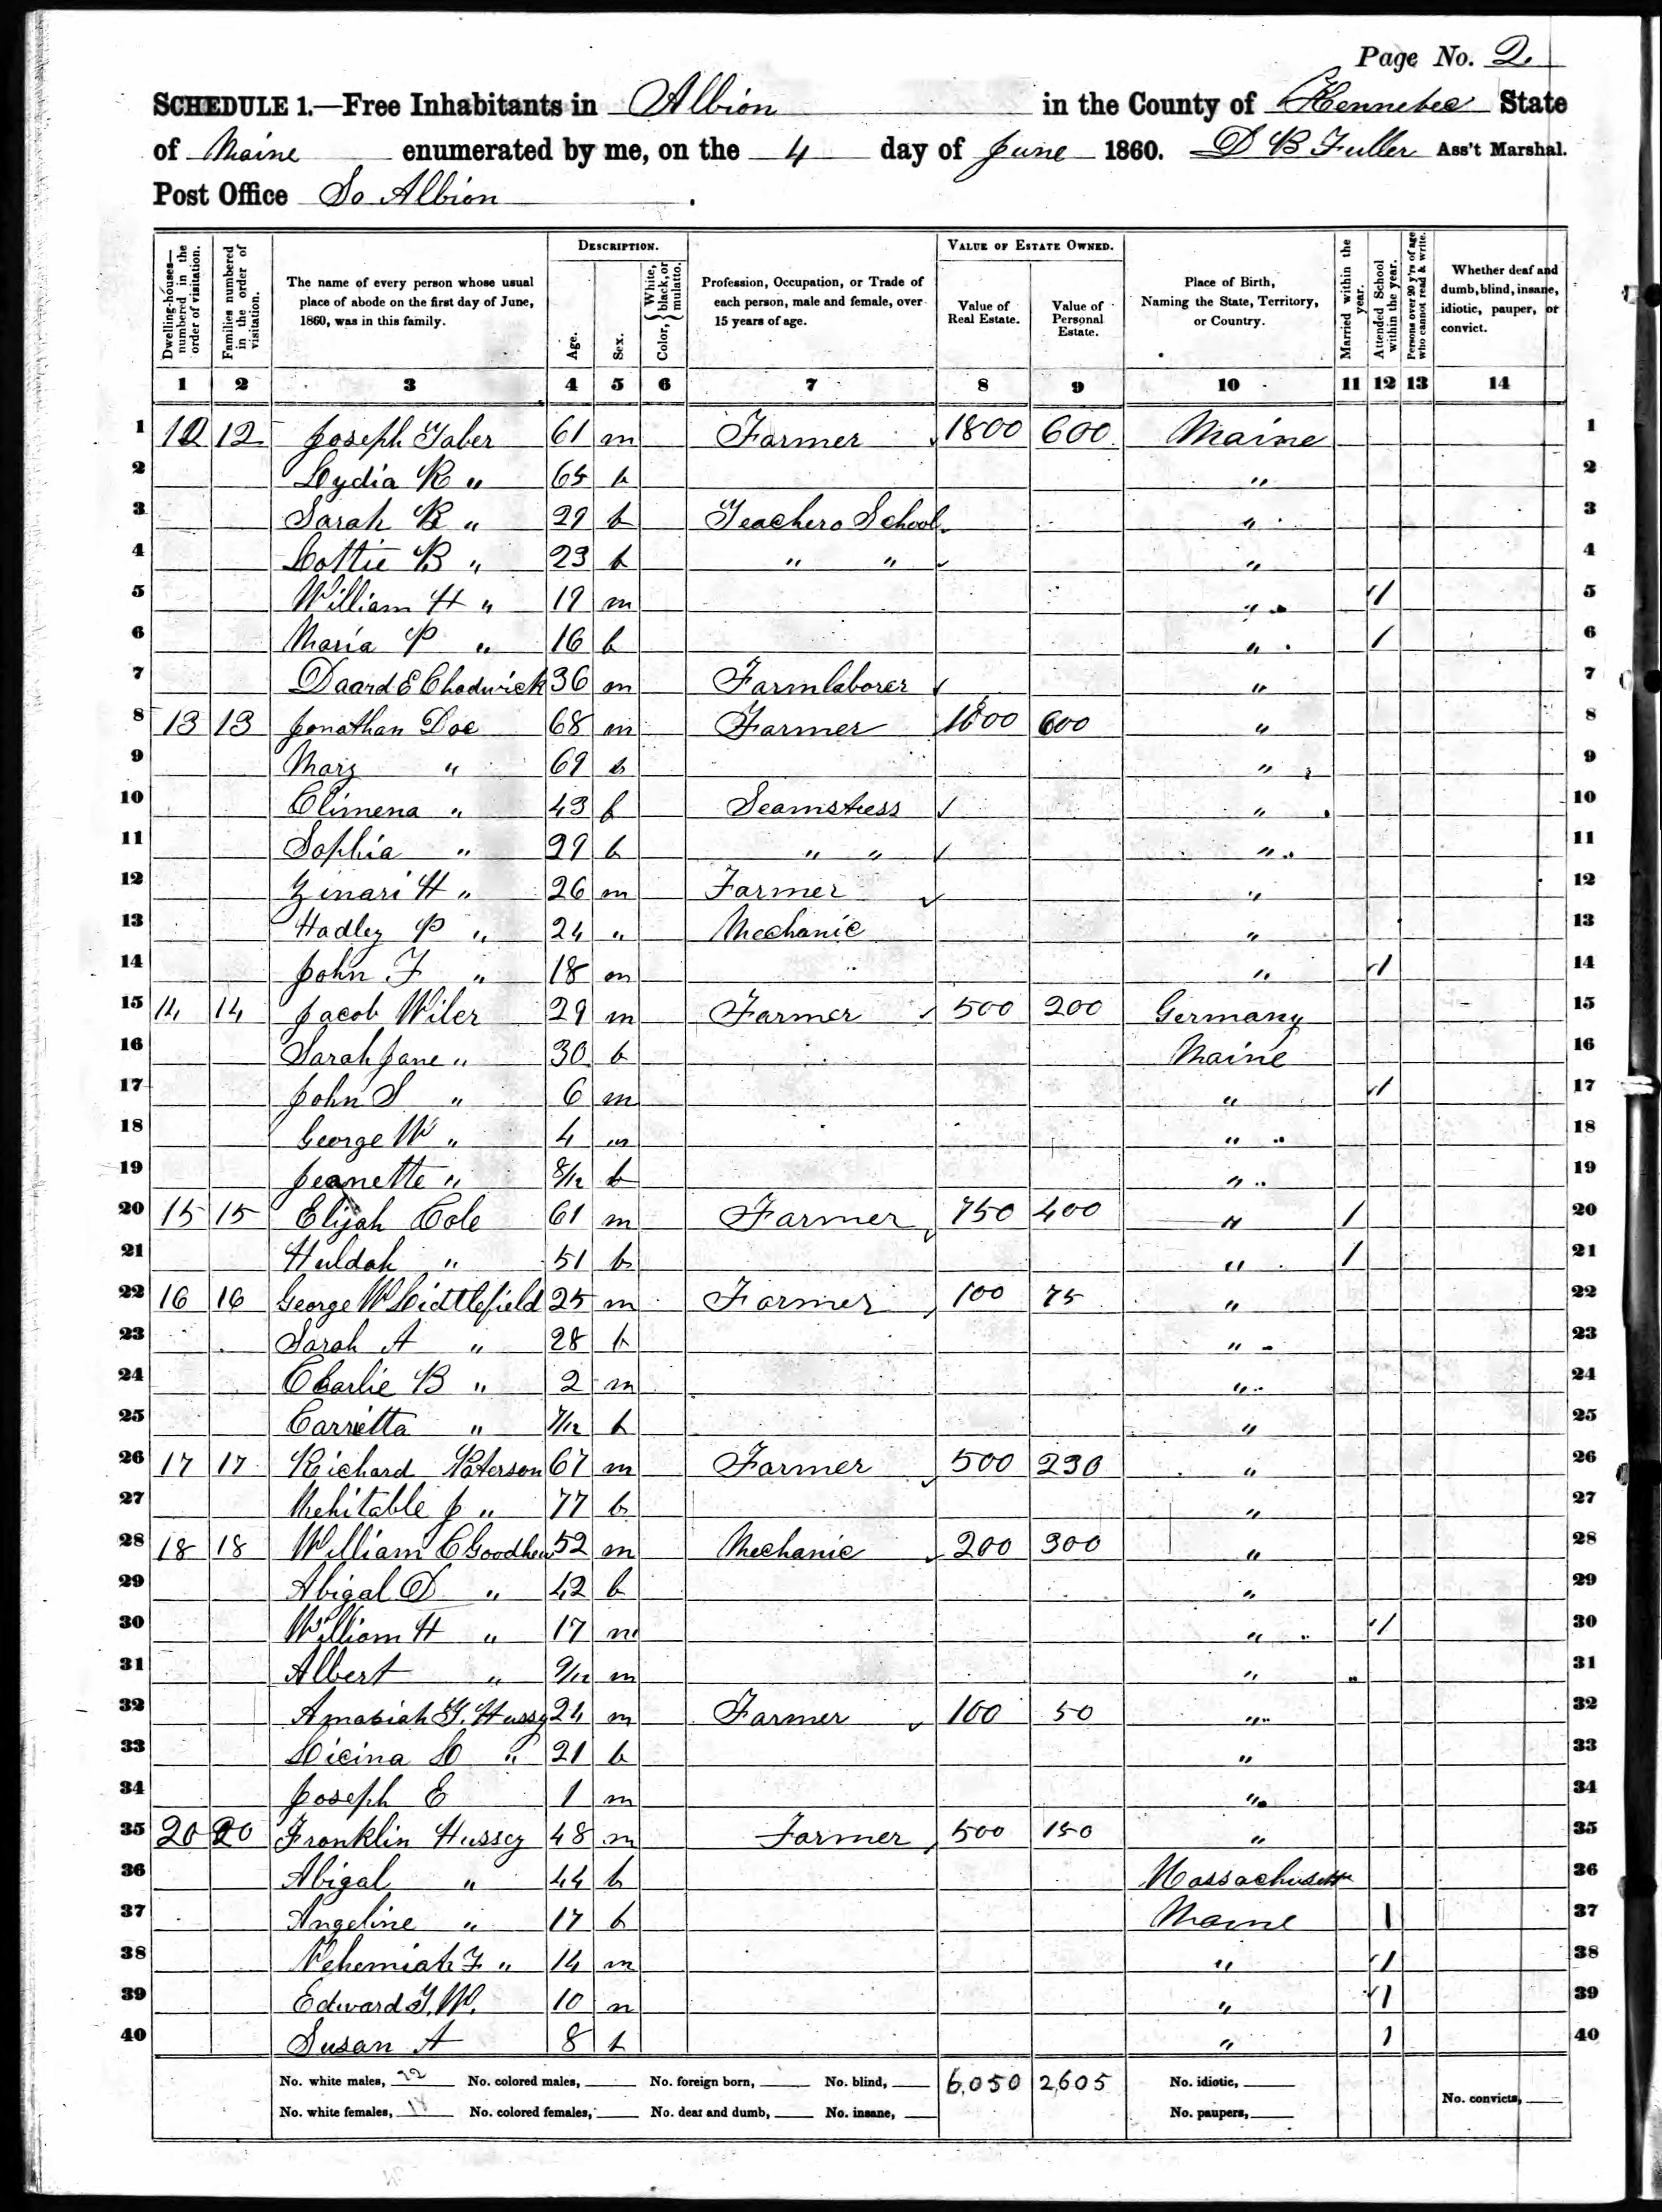 Page No. 2
SCHEDULE 1.—Free Inhabitants in Albion in the County of Kennebec State
of Maine enumerated by me, on the 4 day of June 1860. D B Fuller Ass't Marshal.
Post Office So Albion.
DESCRIPTION. VALUE OF ESTATE OWNED.
Dwelling-houses—numbered in the order of visitation. Families numbered in the order of visitation. The name of every person whose usual place of abode on the first day of June, 1860, was in this family. Age. Sex. Color, {White, black, or mulatto. Profession, Occupation, or Trade of each person, male and female, over 15 years of age. Value of Real Estate. Value of Personal Estate. Place of Birth, Naming the State, Territory, or Country. Married within the year. Attended School within the year. Persons over 20 y'rs of age who cannot read & write. Whether deaf and dumb, blind, insane, idiotic, pauper, or convict.
1 2 3 4 5 6 7 8 9 10 11 12 13 14
1 12 12 Joseph Taber 61 m Farmer 1800 600 Maine 1
2 Lydia R " 65 f " 2
3 Sarah B " 29 f Teachers School " 3
4 Lottie B " 23 f " " " 4
5 William H " 19 m " 1 5
6 Maria P " 16 f " 1 6
7 E Chadwick 36 m Farmlaborer " 7
8 13 13 Jonathan Doe 68 m Farmer 600 " 8
9 Mary " 69 f " 9
10 Climena " 43 f Seamstress " 10
11 Sophia " 29 f " " " 11
12 Zinari H " 26 m Farmer " 12
13 Hadley P " 24 " Mechanic " 13
14 John F " 18 m " 1 14
15 14 14 Jacob Wiler 29 m Farmer 500 200 Germany 15
16 Sarah Jane " 30 f Maine 16
17 John S " 6 m " 1 17
18 George W " 4 m " 18
19 Jeanette " 8/12 f " 19
20 15 15 Elijah Cole 61 m Farmer 750 400 " 1 20
21 Huldah " 51 f " 1 21
22 16 16 George W Littlefield 25 m Farmer 100 75 " 22
23 Sarah A " 28 f " 23
24 Charlie B " 2 m " 24
25 Carrietta " 7/12 f " 25
26 17 17 Richard Paterson 67 m Farmer 500 230 " 26
27 Mehitable J " 77 f " 27
28 18 18 William C Goodhew 52 m Mechanic 200 300 " 28
29 Abigal D " 42 f " 29
30 William H " 17 m " 1 30
31 Albert " 9/12 m " " 31
32 Amasiah G. Hussy 24 m Farmer 100 50 " 32
33 Licina L " 21 f " 33
34 Joseph E 1 m " 34
35 20 20 Franklin Hussey 48 m Farmer 500 150 " 35
36 Abigal " 44 f Massachusetts 36
37 Angeline " 17 f Maine 1 37
38 Nehemiah F " 14 m " 1 38
39 Edward G. W. 10 m " 1 39
40 Susan A 8 f " 1 40
No. white males, 22 No. colored males, No. foreign born, No. blind, 6,050 2605 No. idiotic,
No. white females, 18 No. colored females, No. deaf and dumb, No. insane, No. paupers, No. convicts,